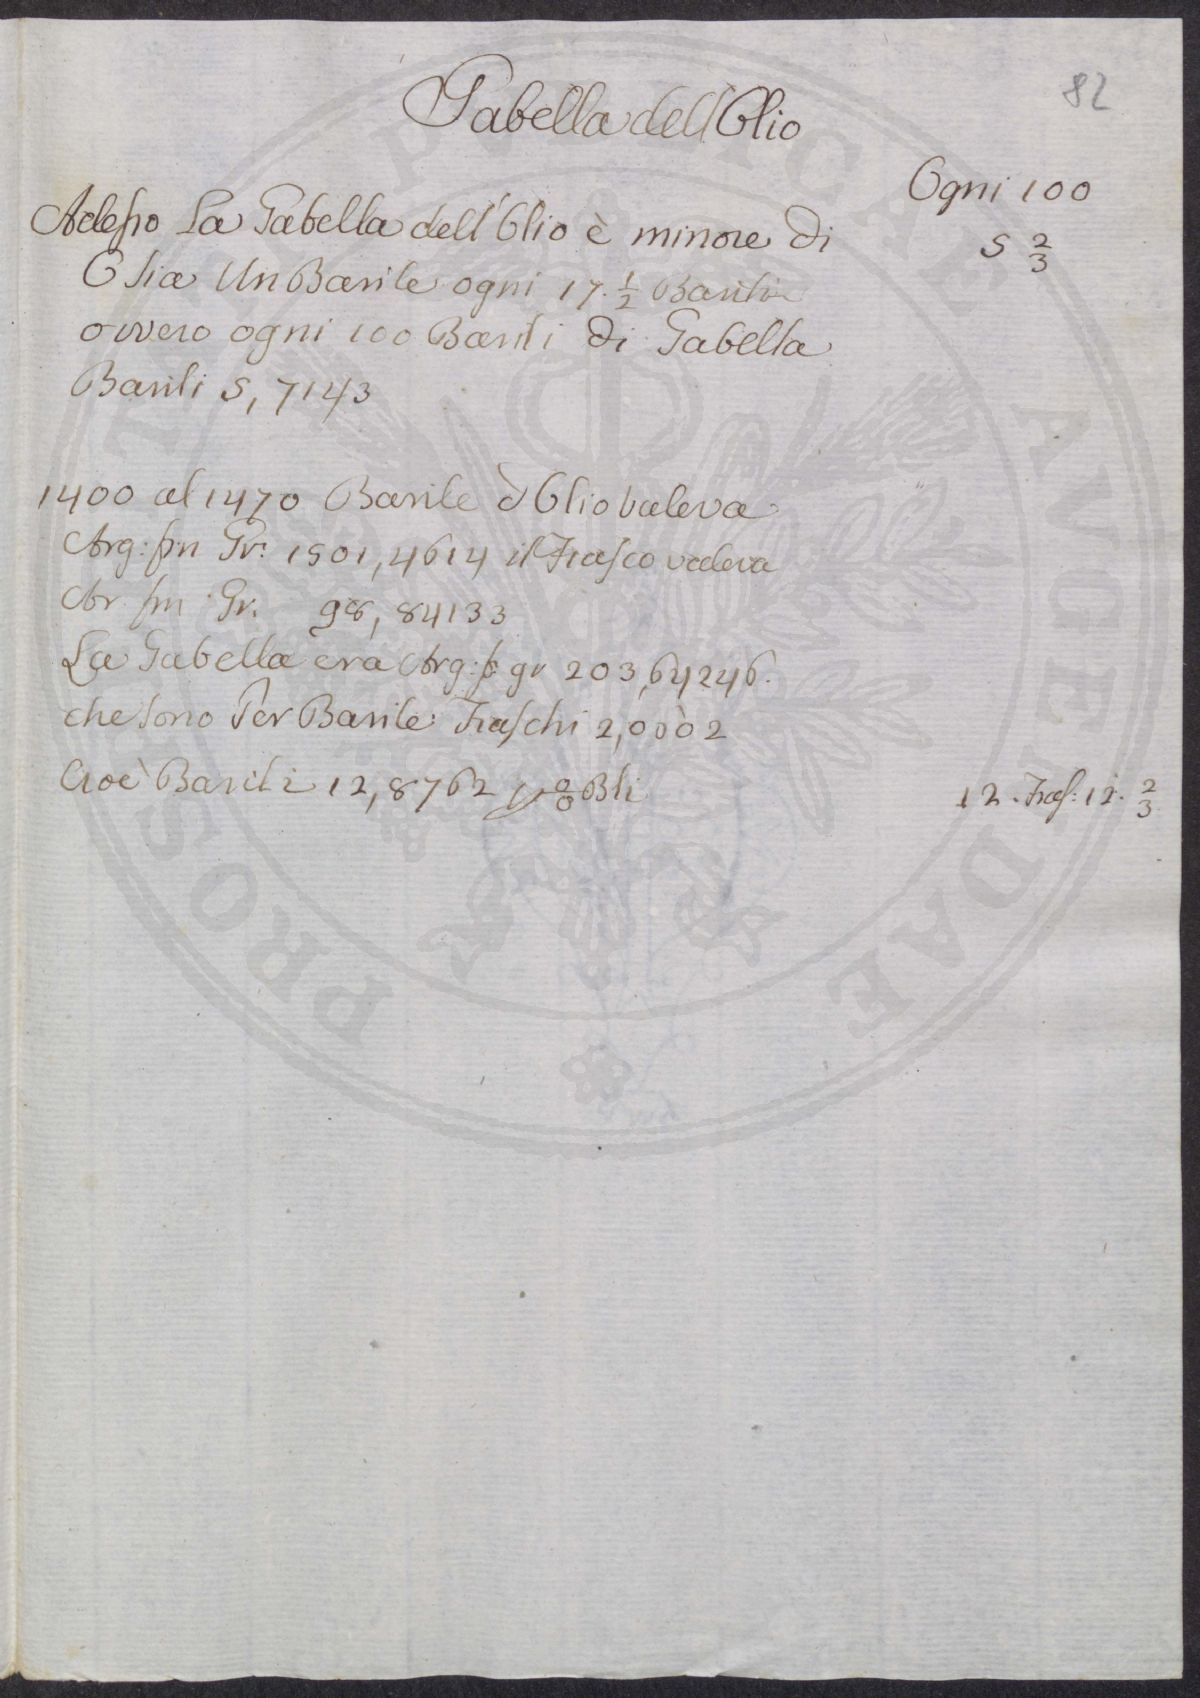 82
Gabella dell'Olio
Ogni 100
Adesso La Gabella dell'Olio è minore di
5 2/3
O sia Un Barile ogni 17. 1/2 Barili
ovvero ogni 100 Barili di Gabella
Barili 5,7143
1400 al 1470 Barile d'Olio valeva
Arg: fin Gr: 1501,4614 il Fiasco valeva
Ar fin Gr. 98,84133
La Gabella era Arg: f gr 203,64246.
che sono Per Barile Fiaschi 2,0602
Cioè Barili 12,8762 p% Bli
12. Fias: 12. 2/3
PROSPERITATI PVBLICAE AVGENDAE